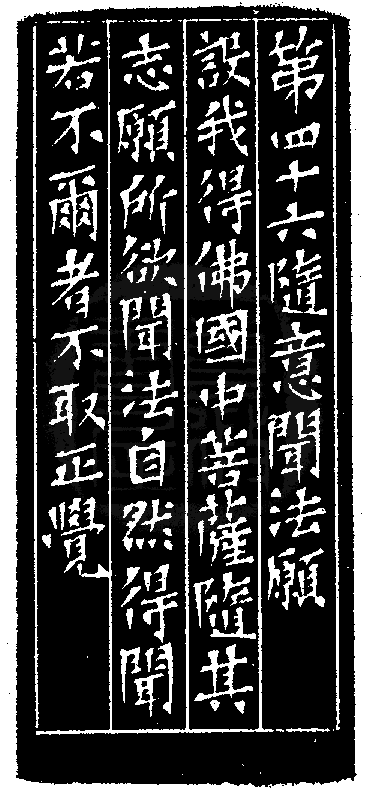 第四十六隨意聞法願
設我得佛國中菩薩隨其
志願所欲聞法自然得聞
若不爾者不取正覺